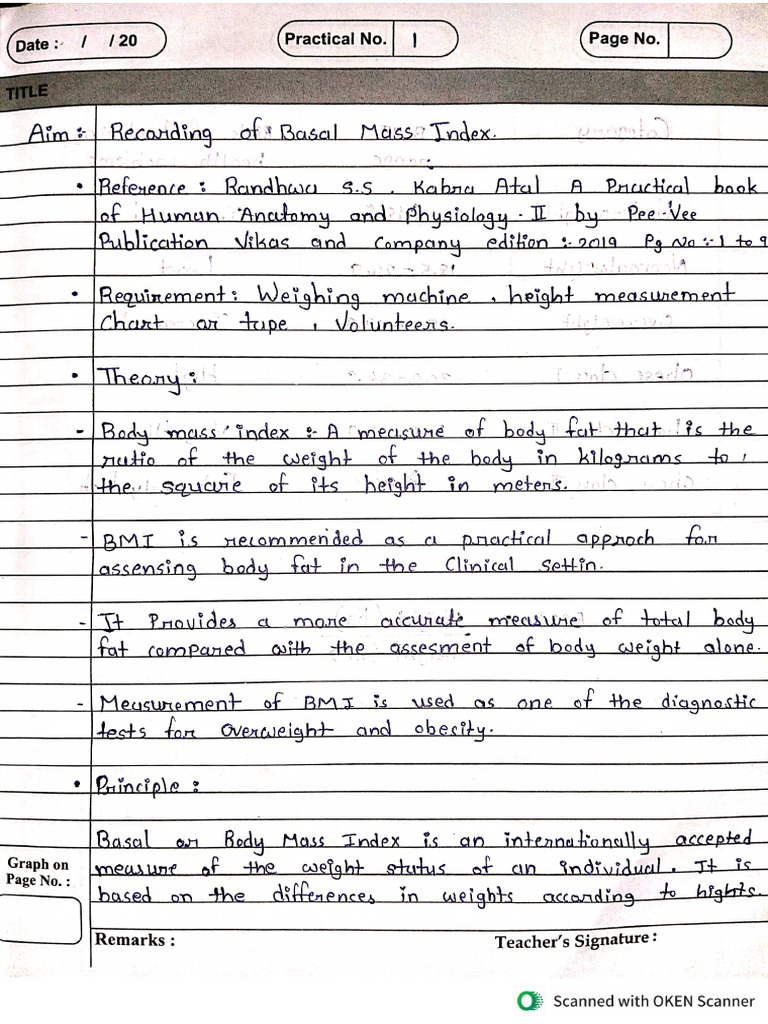 Date :- / / 20
Practical No. 1
Page No.
TITLE
Aim : Recording of Basal Mass Index.
• Reference : Randhwa S.S . Kabra Atal A Practical book
of Human Anatomy and Physiology - II by Pee-Vee
Publication Vikas and Company edition :- 2019 Pg No :- 1 to 9
• Requirement : Weighing machine , height measurement
Chart or tape , Volunteers.
• Theory :
- Body mass index :- A measure of body fat that is the
ratio of the weight of the body in kilograms to
the square of its height in meters.
- BMI is recommended as a practical approch for
assensing body fat in the Clinical settin.
- It Provides a more accurate measure of total body
fat compared with the assesment of body weight alone.
- Measurement of BMI is used as one of the diagnostic
tests for overweight and obecity.
• Principle :
Basal or Body Mass Index is an internationally accepted
measure of the weight status of an individual. It is
based on the differences in weights according to hights.
Graph on
Page No. :
Remarks :
Teacher's Signature :
Scanned with OKEN Scanner